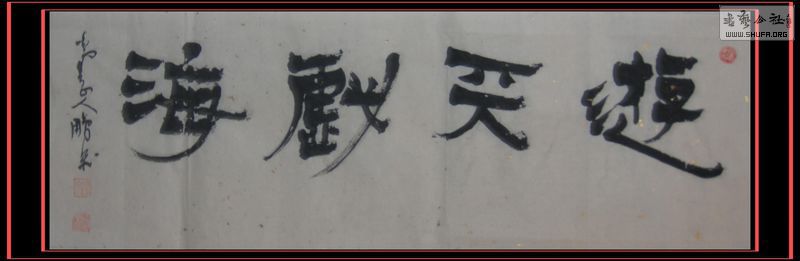 遊天戲海
書藝公社
WWW.SHUFA.ORG